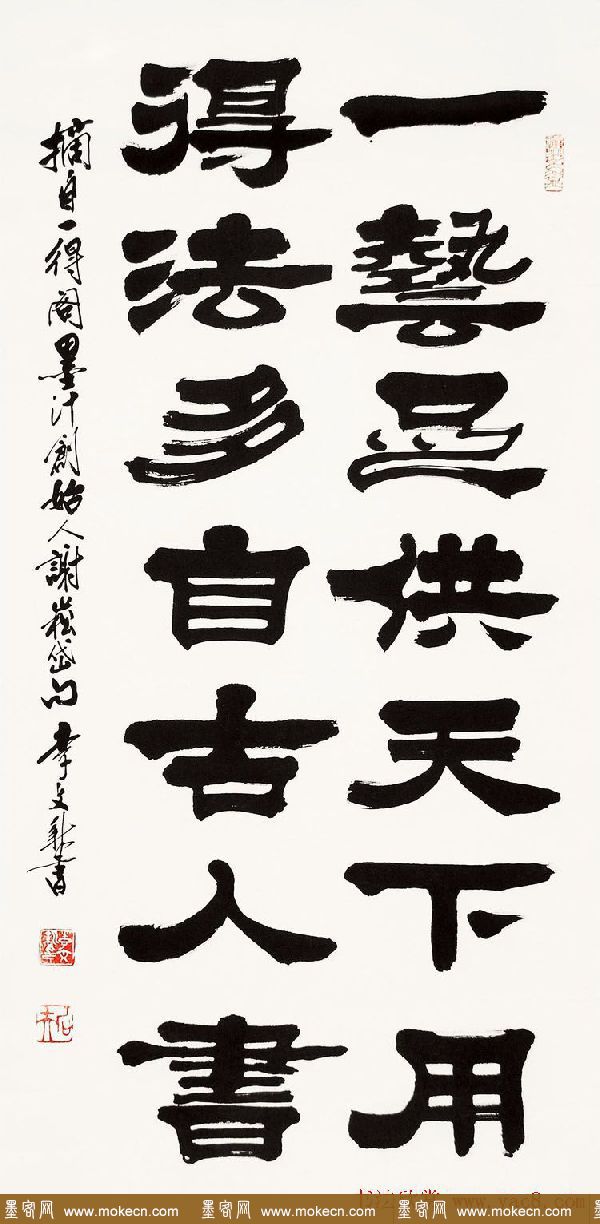 一藝足供天下用
得法多自古人書
摘自一得阁墨汁創始人謝崧岱句 李文書
www.yac8.
墨客网 www.mokecn.com 墨客网 www.mokecn.com 墨客网 www.mokecn.com